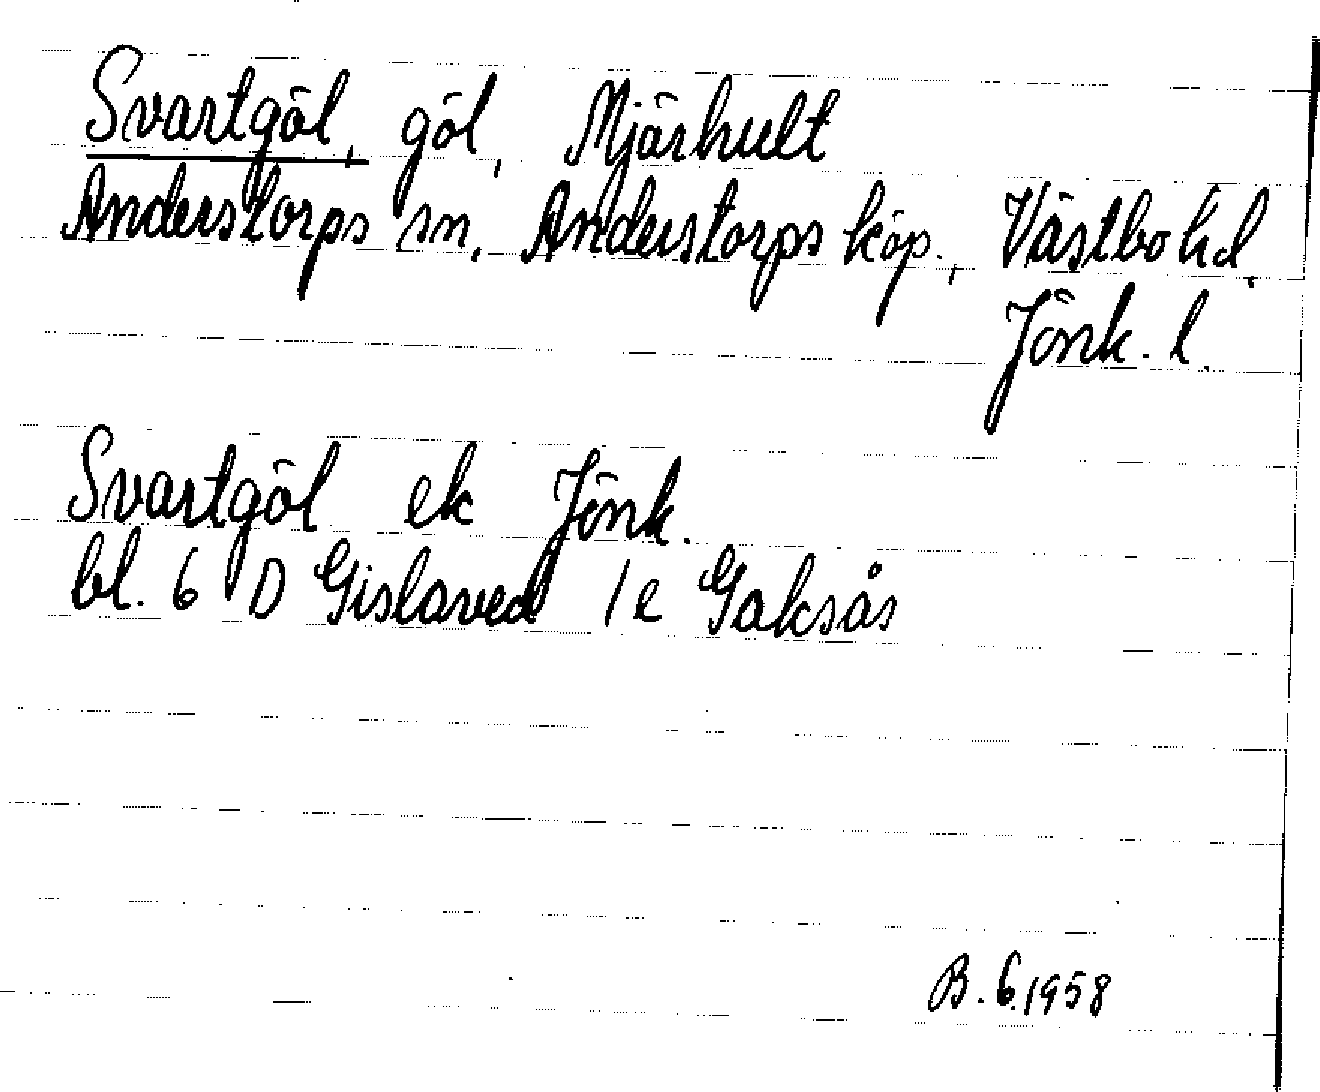 Svartgöl, göl, Mjärhult
Anderstorps sn, Anderstorps köp., Västbo hd,
Jönk. l.
Svartgöl ek Jönk.
bl. 6 D Gislaved 1e Gaksås
B.6.1958